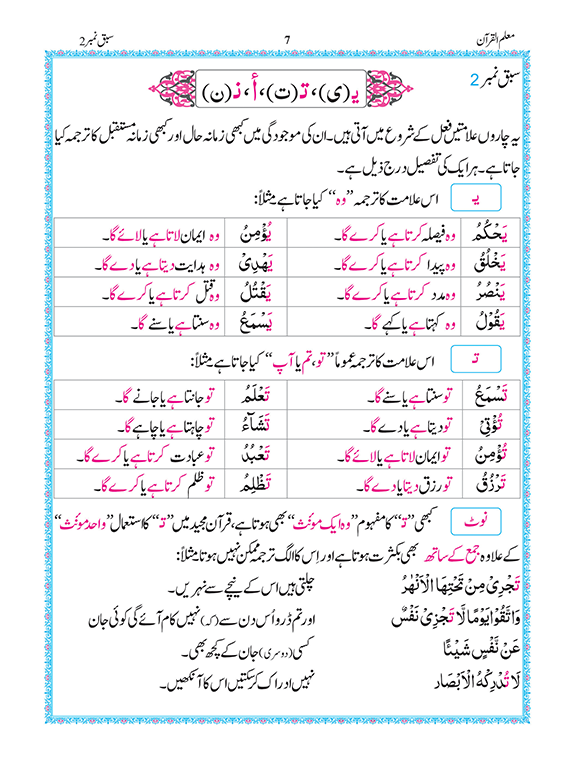 معلم القرآن 7 سبق نمبر 2
سبق نمبر 2
یـ (ی)، تـ (ت)، أ، نـ (ن)
یہ چاروں علامتیں فعل کے شروع میں آتی ہیں۔ ان کی موجودگی میں کبھی زمانہ حال اور کبھی زمانہ مستقبل کا ترجمہ کیا
جاتا ہے۔ ہر ایک کی تفصیل درج ذیل ہے۔
یـ اس علامت کا ترجمہ "وہ" کیا جاتا ہے مثلاً:
يَحْكُمُ وہ فیصلہ کرتا ہے یا کرے گا۔ يُؤْمِنُ وہ ایمان لاتا ہے یا لائے گا۔
يَخْلُقُ وہ پیدا کرتا ہے یا کرے گا۔ يَهْدِىْ وہ ہدایت دیتا ہے یا دے گا۔
يَنْصُرُ وہ مدد کرتا ہے یا کرے گا۔ يَقْتُلُ وہ قتل کرتا ہے یا کرے گا۔
يَقُوْلُ وہ کہتا ہے یا کہے گا۔ يَسْمَعُ وہ سنتا ہے یا سنے گا۔
تـ اس علامت کا ترجمہ عموماً "تو، تم یا آپ" کیا جاتا ہے مثلاً:
تَسْمَعُ تو سنتا ہے یا سنے گا۔ تَعْلَمُ تو جانتا ہے یا جانے گا۔
تُؤْتِىْ تو دیتا ہے یا دے گا۔ تَشَآءُ تو چاہتا ہے یا چاہے گا۔
تُؤْمِنُ تو ایمان لاتا ہے یا لائے گا۔ تَعْبُدُ تو عبادت کرتا ہے یا کرے گا۔
تَرْزُقُ تو رزق دیتا یا دے گا۔ تَظْلِمُ تو ظلم کرتا ہے یا کرے گا۔
نوٹ کبھی "تـ" کا مفہوم "وہ ایک مونث" بھی ہوتا ہے، قرآن مجید میں "تـ" کا استعمال "واحد مونث"
کے علاوہ جمع کے ساتھ بھی بکثرت ہوتا ہے اور اس کا الگ ترجمہ ممکن نہیں ہوتا مثلاً:
تَجْرِىْ مِنْ تَحْتِهَا الْاَنْهٰرُ چلتی ہیں اس کے نیچے سے نہریں۔
وَاتَّقُوْا يَوْمًا لَّا تَجْزِىْ نَفْسٌ اور تم ڈرو اُس دن سے (کہ) نہیں کام آئے گی کوئی جان
عَنْ نَّفْسٍ شَيْئًا کسی (دوسری) جان کے کچھ بھی۔
لَا تُدْرِكُهُ الْاَبْصَار نہیں ادراک کر سکتیں اس کا آنکھیں۔